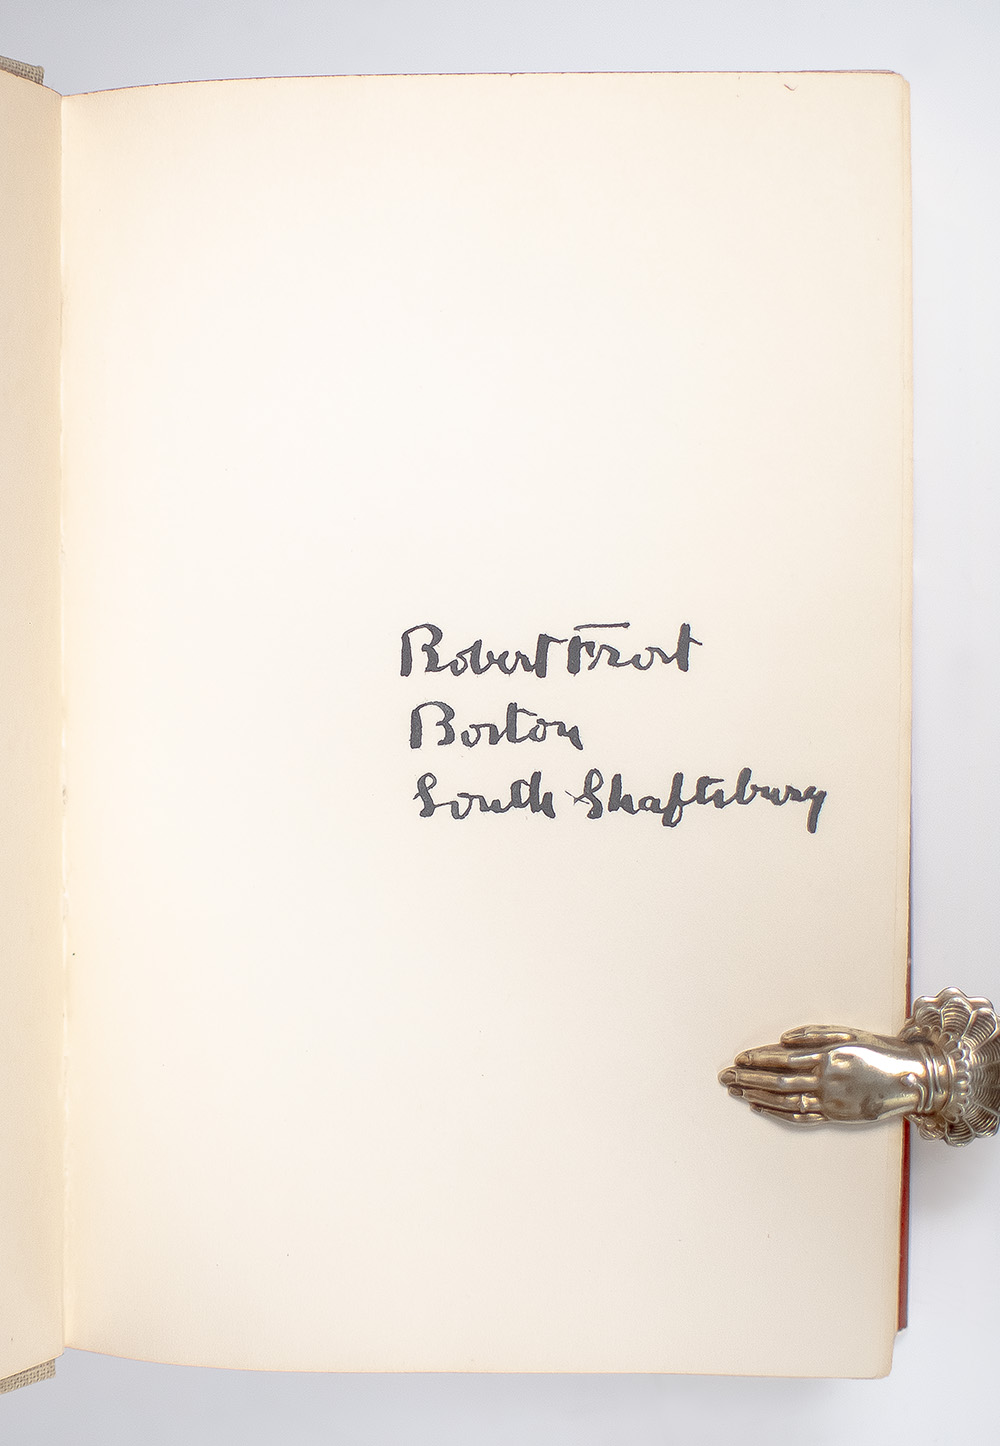 Robert Frost
Boston
South Shaftsbury